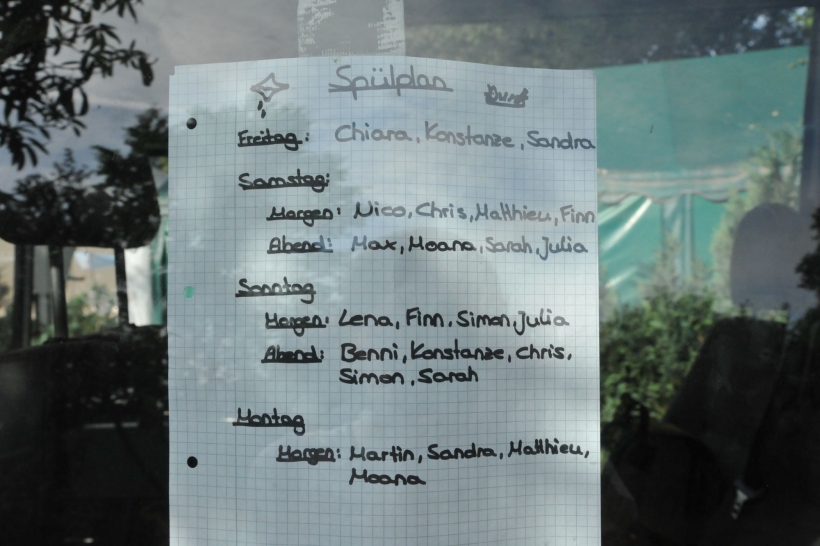 Spülplan
Freitag: Chiara, Konstanze, Sandra
Samstag:
Morgen: Nico, Chris, Matthieu, Finn
Abend: Max, Moana, Sarah, Julia
Sonntag
Morgen: Lena, Finn, Simon, Julia
Abend: Benni, Konstanze, Chris,
Simon, Sarah
Montag
Morgen: Martin, Sandra, Matthieu,
Moana